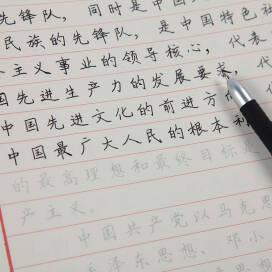 先锋队，同时是中国
民族的先锋队，是中国特色社
主义事业的领导核心，代表
国先进生产力的发展要求，代
中国先进文化的前进方
中国最广大人民的根本利
的最高理想和最终目标是
产主义。
中国共产党以马克思
毛泽东思想、邓小